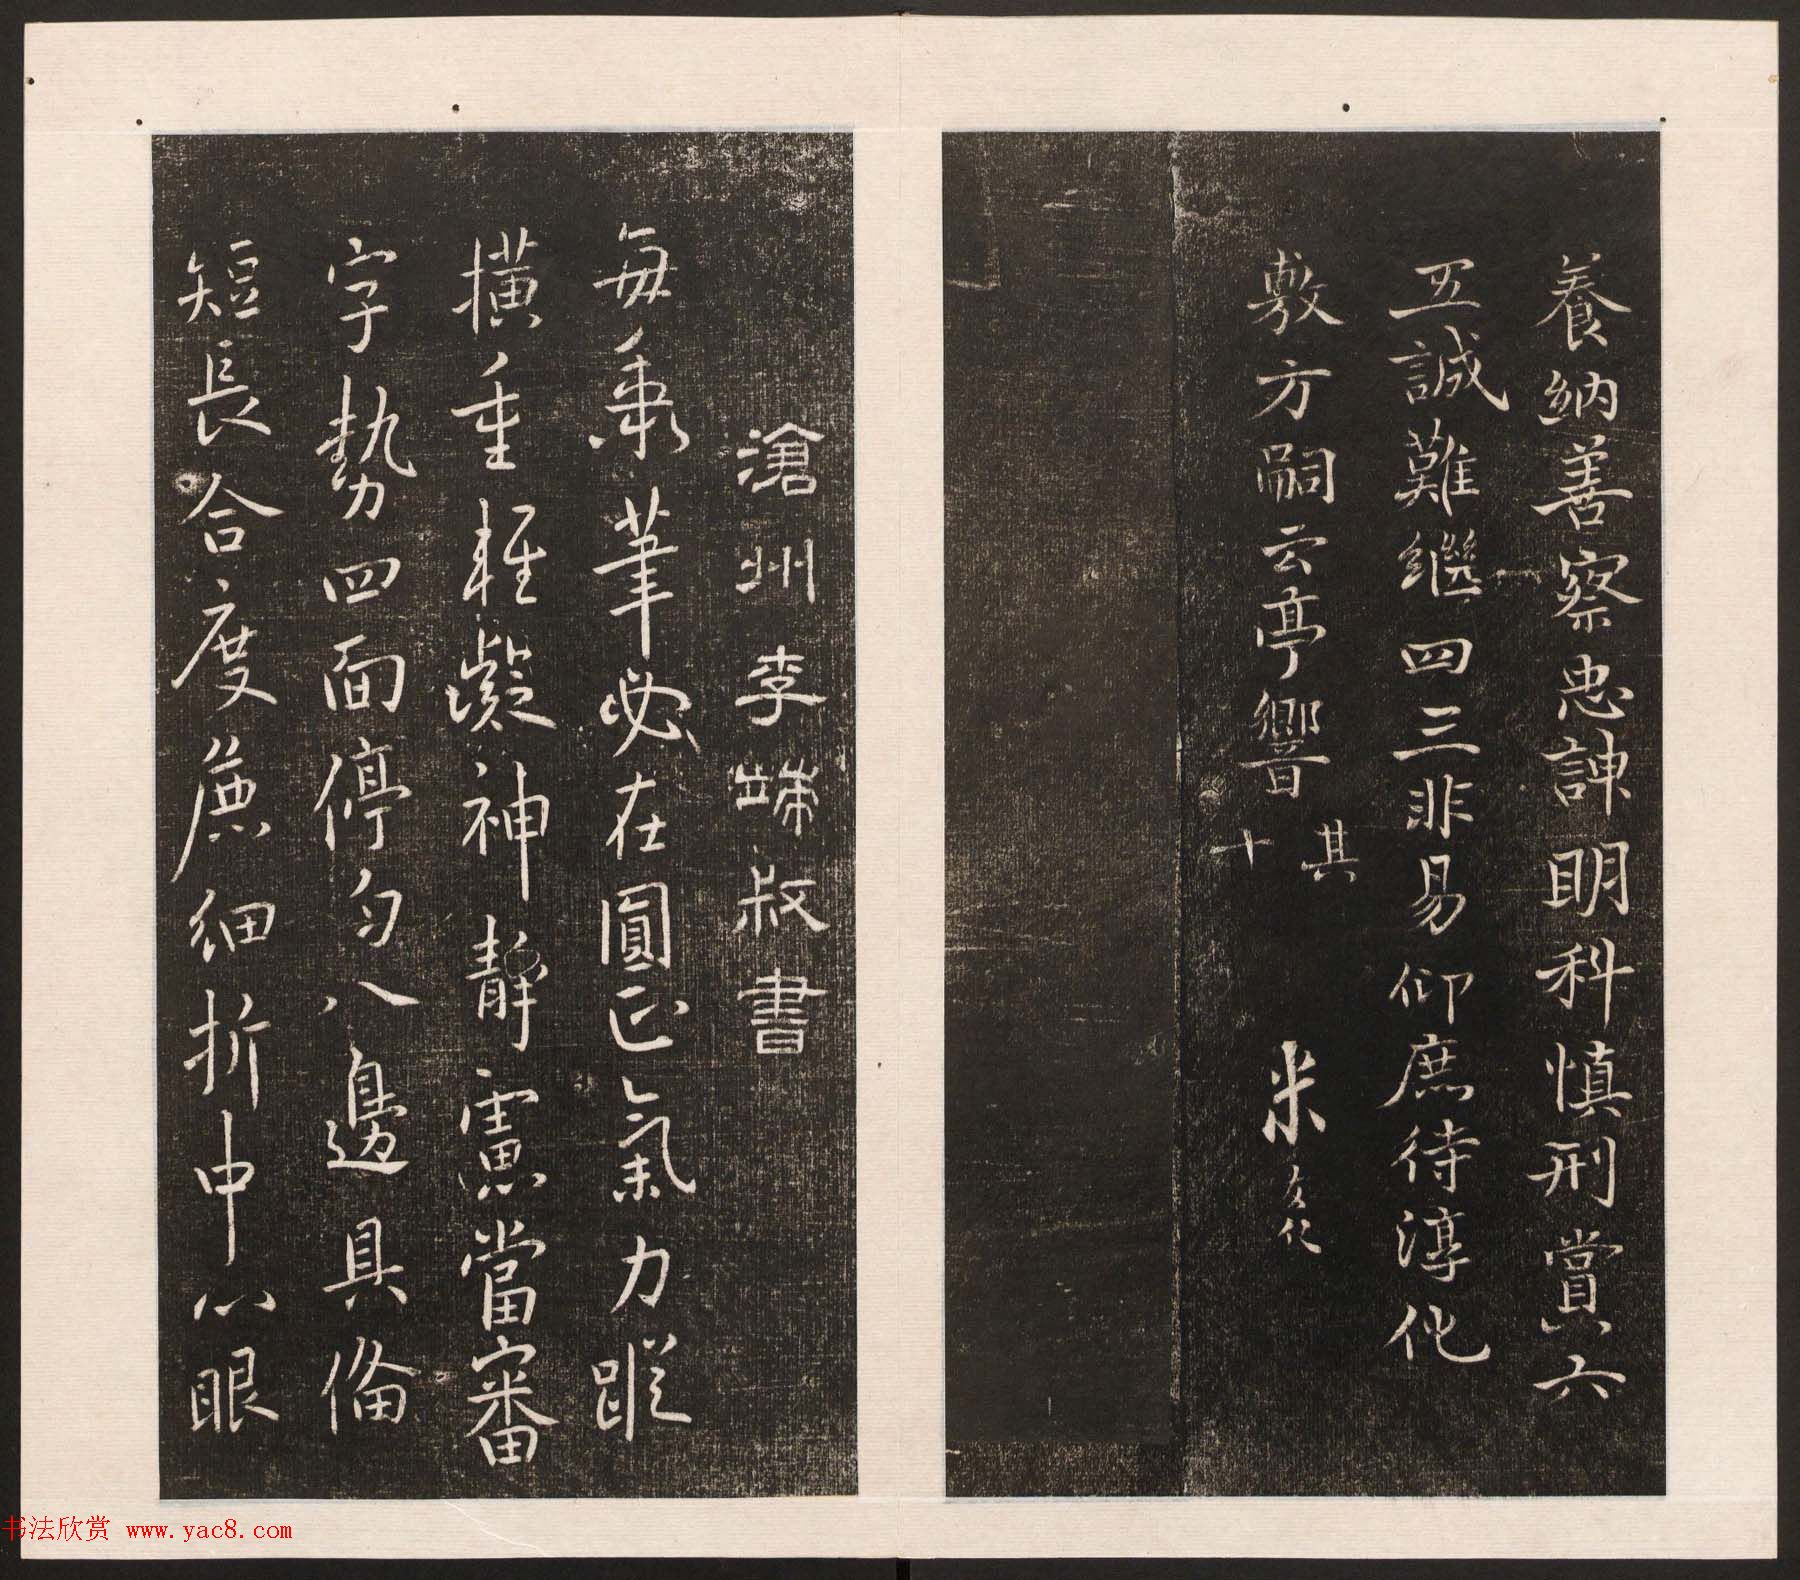 養納善察忠諫明科慎刑賞六
五誠難继四三非易仰庶待淳化
敷方嗣云亭響 其十 米友仁
滄州李端叔書
每秉筆必在圓正氣力蹤
橫重輕凝神靜慮當審
字勢四面停勻八邊具俻
短長合度麁細折中心眼
书法欣赏 www.yac8.com